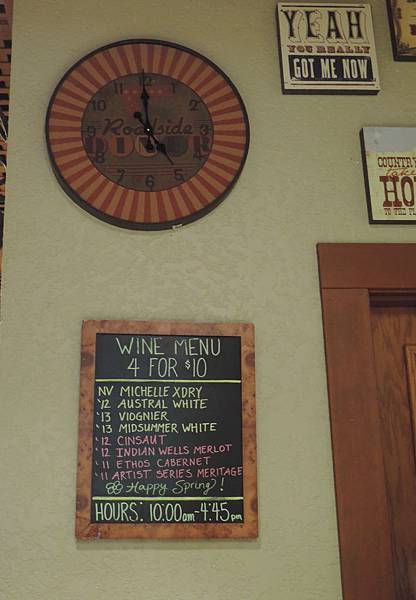 YEAH
YOU REALLY
GOT ME NOW
12
11
10
9
8
7
6
5
4
3
2
1
Roadside
COUNTRY
Take
HO
TO THE
WINE MENU
4 FOR $10
NV MICHELLE XDRY
'12 AUSTRAL WHITE
'13 VIOGNIER
'13 MIDSUMMER WHITE
'12 CINSAUT
'12 INDIAN WELLS MERLOT
'11 ETHOS CABERNET
'11 ARTIST SERIES MERITAGE
Happy Spring!
HOURS: 10:00am-4:45pm